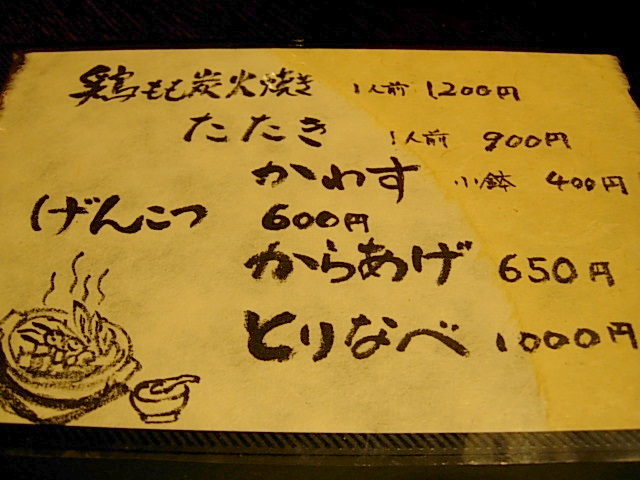 鶏もも炭火焼き 1人前 1200円
たたき 1人前 900円
かわす 小鉢 400円
げんこつ 600円
からあげ 650円
とりなべ 1000円